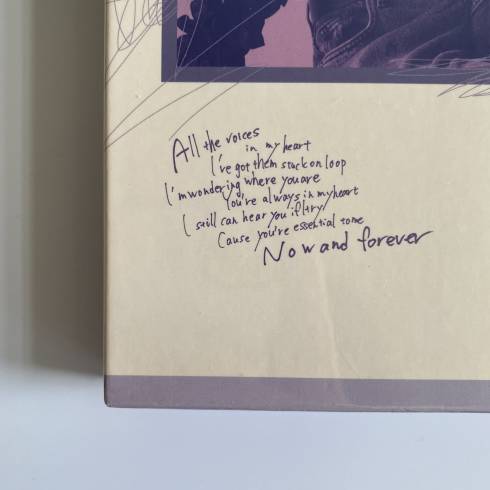 All the voices
in my heart
I've got them stuck on loop
I'm wondering where you are
You're always in my heart
I still can hear you if I try
Cause you're essential to me
Now and forever